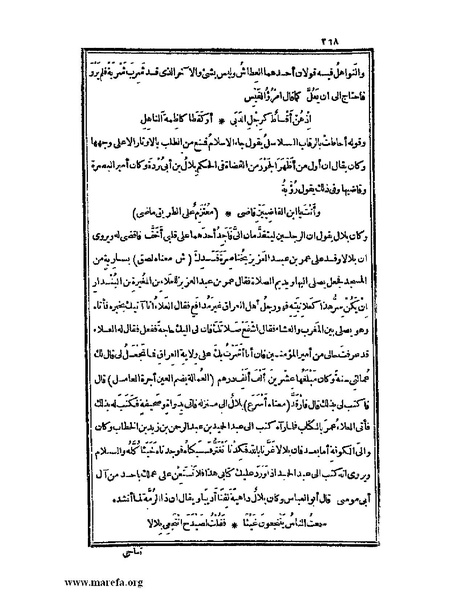 ٢٦٨
والنواهل فيه قولان أحدهما العطاش وليس بشئ والآخر الذى قد شرب شربة فلم يرو
فاحتاج الى ان يعل كما قال امرؤ القيس
اذ هن أقساط كرجل الدبى * أو كقطا كاظمة الناهل
وقوله أحاطت بالرقاب السلاسل يقول جاء الاسلام فمنع من الطلب بالاوتار الاعلى وجهها
وكان يقال ان أول من أظهر الجور من القضاة فى الحكم بلال بن أبى بردة وكان أمير البصرة
وقاضيها وفى ذلك يقول رؤبة
وأنت يا ابن القاضيين قاضى * (معتزم على الطريق ماضى)
وكان بلال يقول ان الرجلين ليتقدمان الى فأجد أحدهما على قلبى أخف فاقضى له ويروى
ان بلالا وفد على عمر بن عبد العزيز بخناصرة فسدك (ش معناه لصق) بسارية من
المسجد فجعل يصلى اليها ويديم الصلاة فقال عمر بن عبد العزيز للعلاء بن المغيرة بن البندار
ان يكن سر هذا كعلانيته فهو رجل أهل العراق غير مدافع فقال العلاء أنا آتيك بخبره فأتاه
وهو يصلى بين المغرب والعشاء فقال اشفع صلاتك فان لى اليك حاجة ففعل فقال له العلاء
قد عرفت حالى من أمير المؤمنين فان أنا أشرت بك على ولاية العراق فما تجعل لى قال لك
عمالتى سنة وكان مبلغها عشرين ألف ألف درهم (العمالة بضم العين أجرة العامل) قال
فاكتب لى بذلك قال فارقد (معناه أسرع) بلال الى منزله فاتى بدواة وصحيفة فكتب له بذلك
فأتى العلاء عمر بالكتاب فلما رآه كتب الى عبد الحميد بن عبد الرحمن بن زيد بن الخطاب وكان
والى الكوفة أما بعد فان بلالا غرنا بالله فكدنا نغتر فسبكناه فوجدناه خبثا كله والسلام
ويروى انه كتب الى عبد الحميد اذا ورد عليك كتابى هذا فلا تستعن على عملك باحد من آل
أبى موسى قال أبو العباس وكان بلال داهية لقنا أديبا ويقال ان ذا الرمة لما أنشده
سمعت الناس ينتجعون غيثا * فقلت لصيدح انتجعى بلالا
تناسى
www.marefa.org